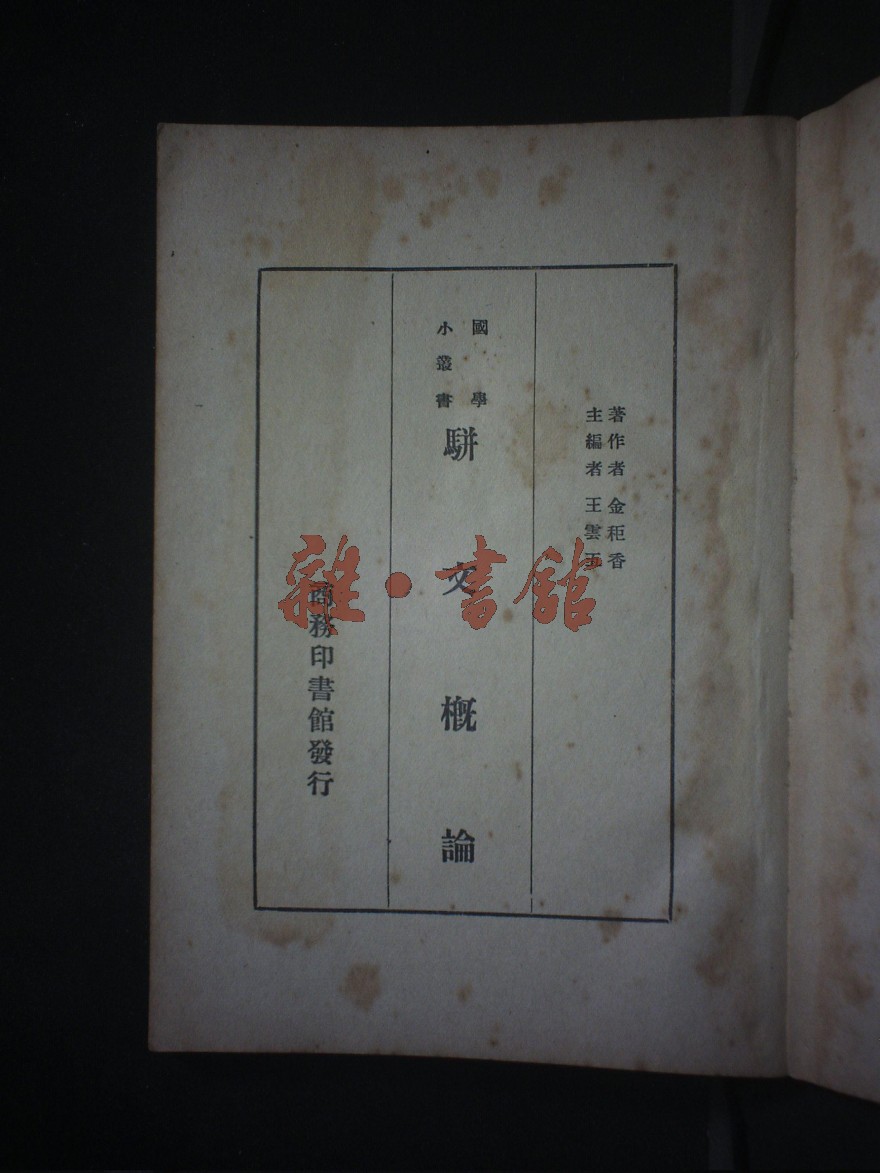 著作者 金秬香
主編者 王雲五
國學
小叢書
駢文概論
商務印書館發行
雜·書館